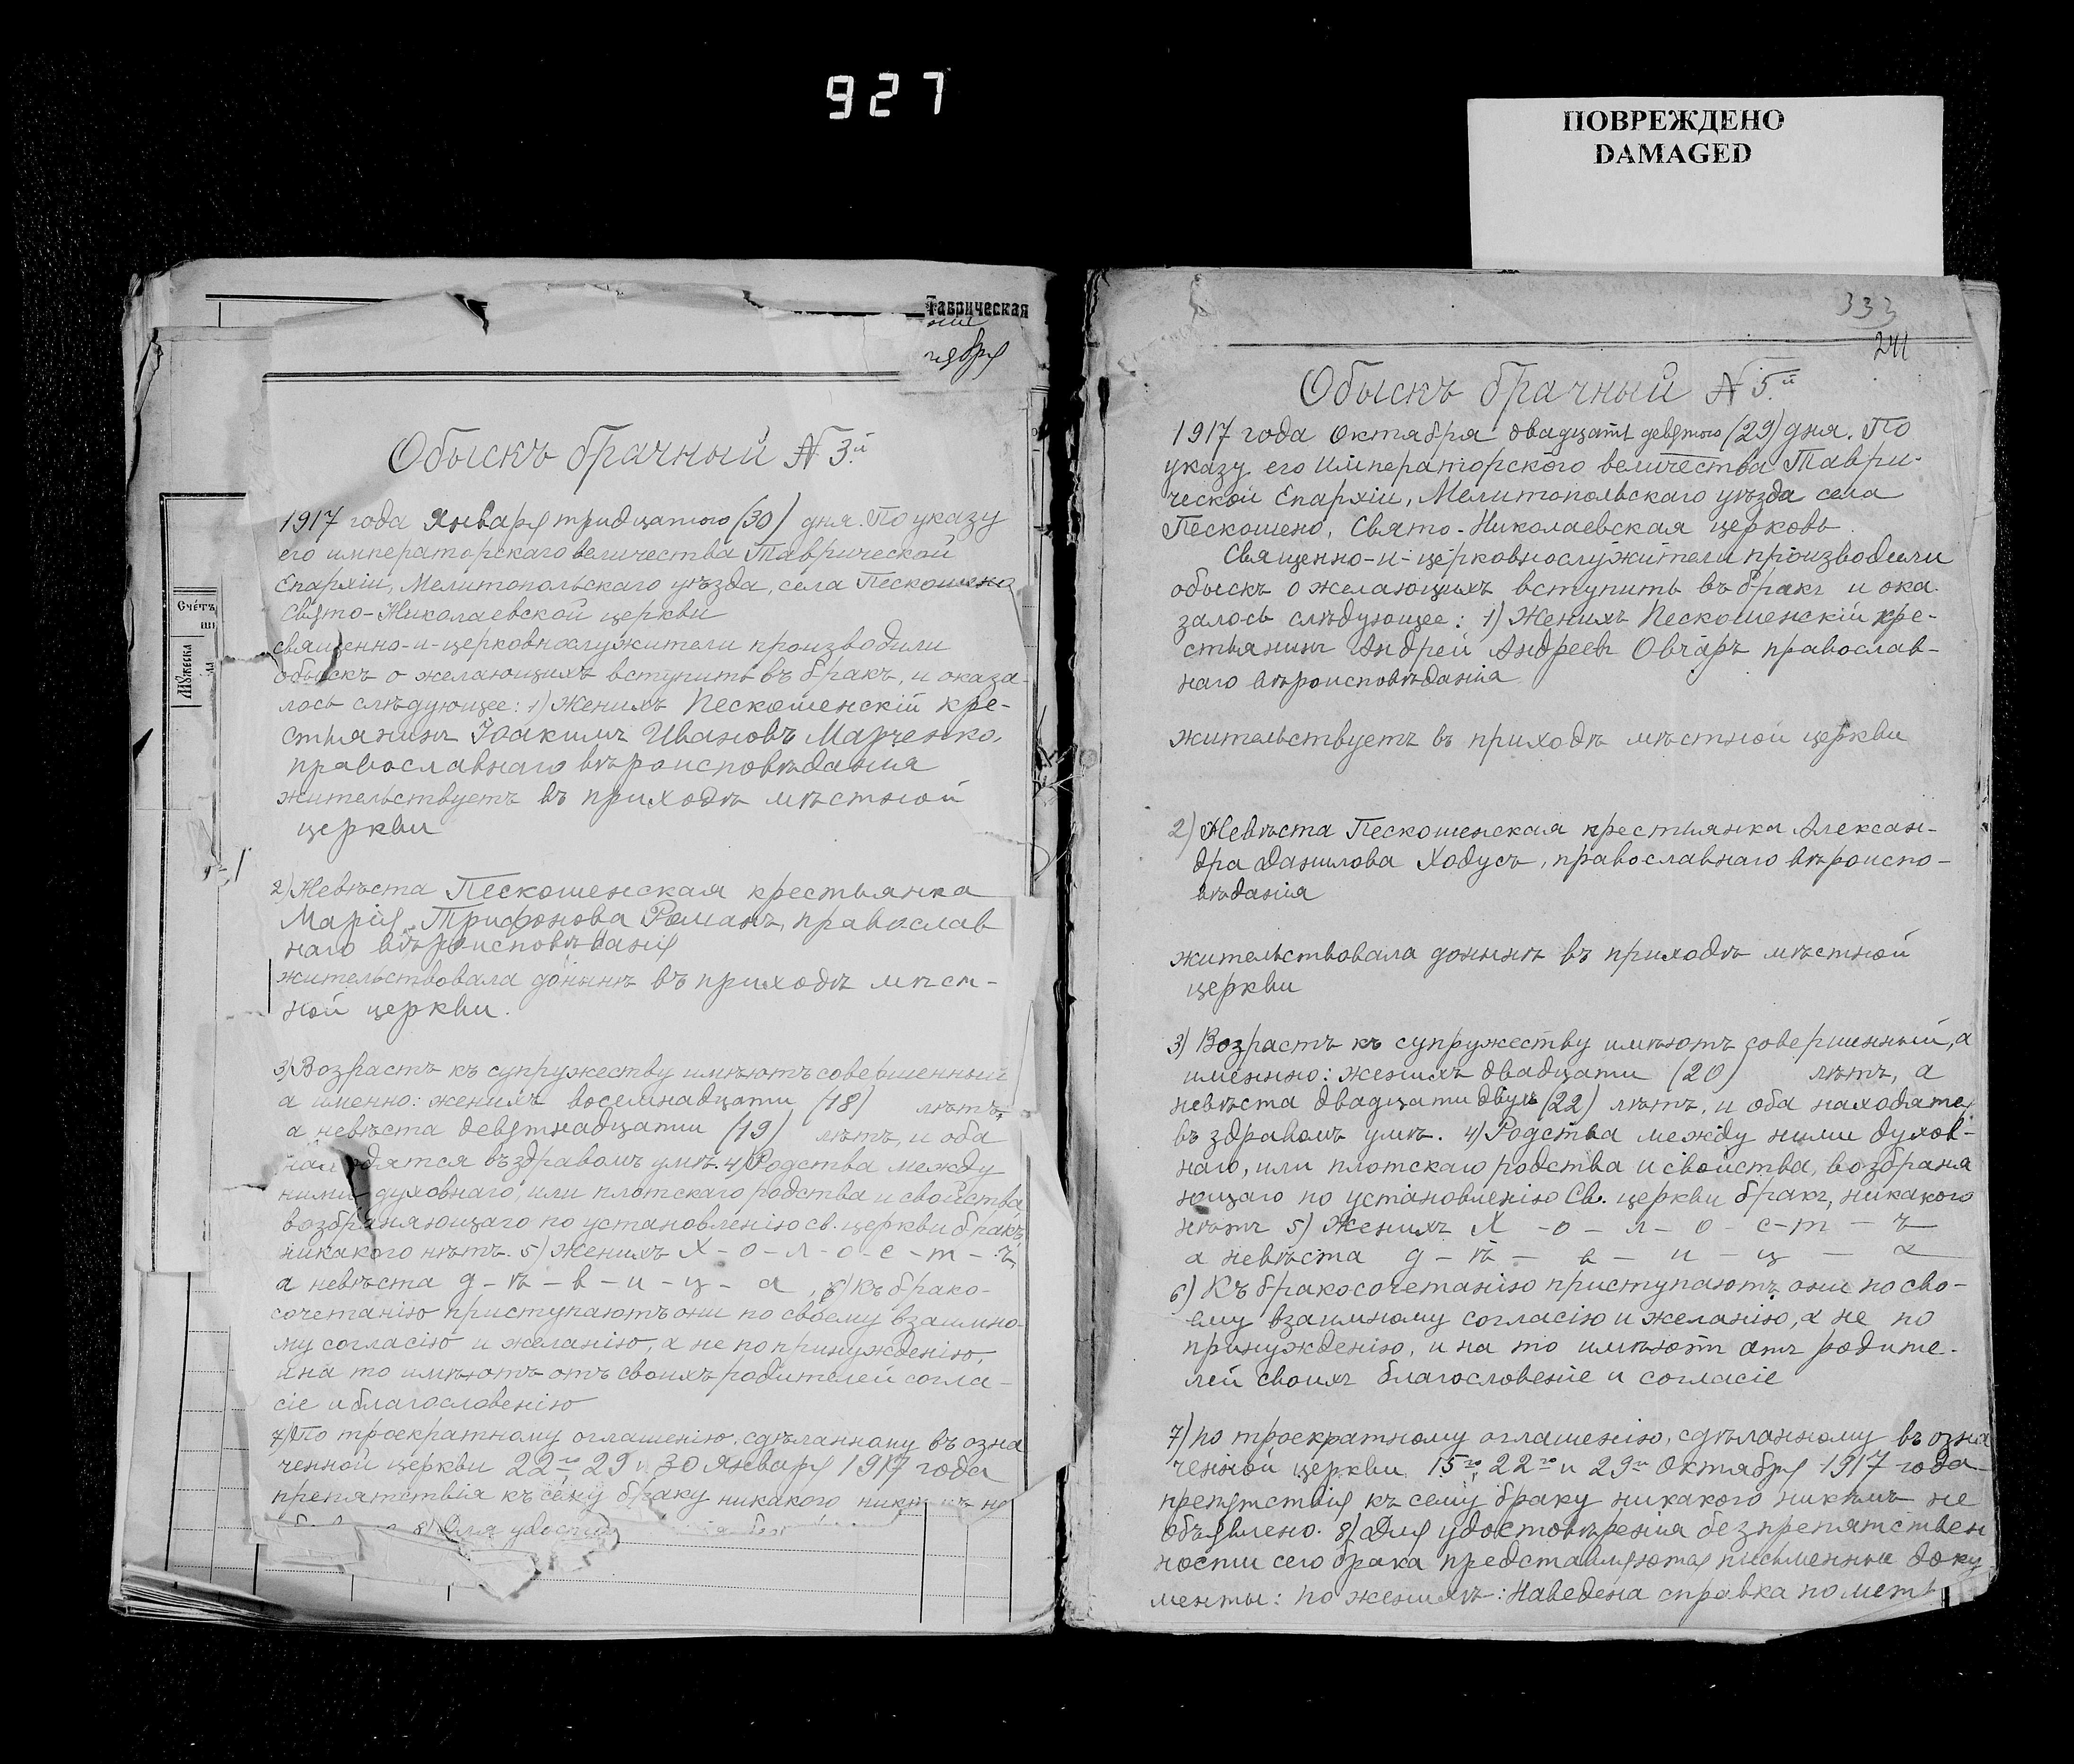 927
ПОВРЕЖДЕНО
DAMAGED
Таврическая
Счетъ
Мужеска
Обыскъ брачный № 3й
1917 года Января тридцатого (30) дня. По указу
его императорскаго величества Таврической
Епархіи, Мелитопольскаго уѣзда, села Пескошено
Свято-Николаевской церкви
священно-и-церковнослужители производили
обыскъ о желающихъ вступить въ бракъ, и оказа-
лось слѣдующее: 1) Женихъ Пескошенскій кре-
стьянинъ Іоакимъ Ивановъ Марченко,
православнаго вѣроисповѣданія
жительствуетъ въ приходѣ мѣстной
церкви
2) Невѣста Пескошенская крестьянка
Марія Трифонова Романъ, православ
наго вѣроисповѣданія
жительствовала донынѣ въ приходѣ мѣст-
ной церкви.
3) Возрастъ къ супружеству имѣютъ совершенный
а именно: женихъ восемнадцати (18) лѣтъ,
а невѣста девятнадцати (19) лѣтъ, и оба
находятся въ здравомъ умѣ. 4) Родства между
ними духовнаго, или плотскаго родства и свойства,
возбраняющаго по установленію св. церкви бракъ,
никакого нѣтъ. 5) Женихъ Х-о-л-о-с-т-ъ,
а невѣста д-ѣ-в-и-ц-а, 6) Къ брако-
сочетанію приступаютъ они по своему взаимно-
му согласію и желанію, а не по принужденію,
и на то имѣютъ отъ своихъ родителей согла-
сіе и благословенію
7) По троекратному оглашенію, сдѣланному въ озна
ченной церкви 22го, 29 и 30 Января 1917 года
препятствія къ сему браку никакого
8) Для
333
241
Обыскъ брачный № 5.й
1917 года Октября двадцать девятого (29) дня. По
указу его Императорского величества Таври-
ческой Епархіи, Мелитопольскаго уѣзда села
Пескошено, Свято-Николаевская церковь
Священно-и-церковнослужители производили
обыскъ о желающихъ вступить въ бракъ и ока-
залось слѣдующее: 1) Женихъ Пескошенскій кре-
стьянинъ Андрей Андреевъ Овчаръ православ-
наго вѣроисповѣданія
жительствуетъ въ приходѣ мѣстной церкви
2) Невѣста Пескошенская крестьянка Алексан-
дра Данилова Ходусъ, православнаго вѣроиспо-
вѣданія
жительствовала донынѣ въ приходѣ мѣстной
церкви
3) Возрастъ къ супружеству имѣютъ совершенный, а
именно: женихъ двадцати (20) лѣтъ, а
невѣста двадцати двухъ (22) лѣтъ, и оба находятся
въ здравомъ умѣ. 4) Родства между ними духов-
наго, или плотскаго родства и свойства, возбраня
ющаго по установленію Св. церкви бракъ, никакого
нѣтъ 5) Женихъ Х-о-л-о-с-т-ъ
а невѣста д-ѣ-в-и-ц-а
6) Къ бракосочетанію приступаютъ они по сво-
ему взаимному согласію и желанію, а не по
принужденію, и на то имѣютъ отъ родите-
лей своихъ благословеніе и согласіе
7) по троекратному оглашенію, сдѣланному въ озна
ченной церкви 15го, 22го и 29го Октября 1917 года
препятствія къ сему браку никакого никѣмъ не
объявлено. 8) Для удостовѣренія безпрепятствен
ности сего брака представляются письменные доку
менты: по женихѣ: Наведена справка по метъ